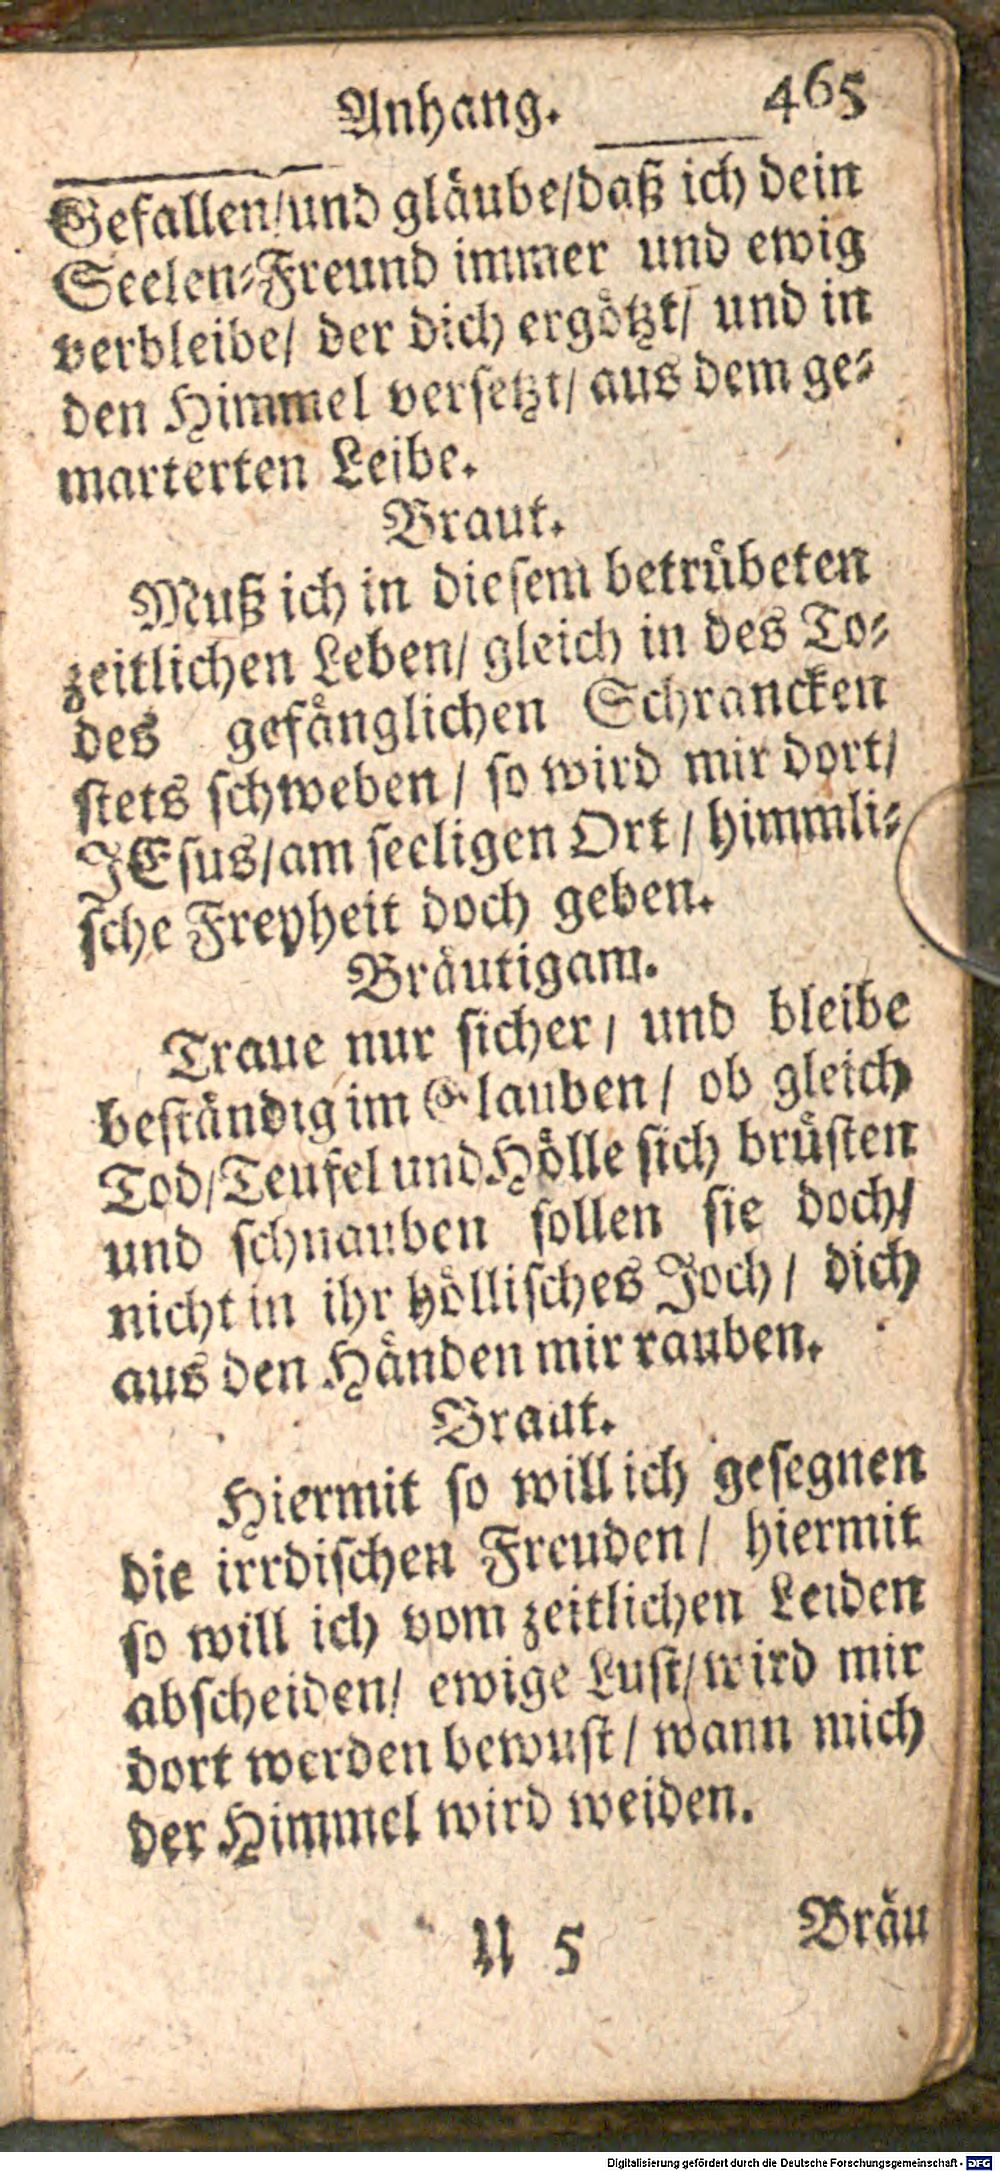 Anhang. 465
Gefallen/und gläube/daß ich dein
Seelen-Freund immer und ewig
verbleibe/ der dich ergötzt/ und in
den Himmel versetzt/ aus dem ge-
marterten Leibe.
Braut.
Muß ich in diesem betrübeten
zeitlichen Leben/ gleich in des To-
des gefänglichen Schrancken
stets schweben/ so wird mir dort/
JEsus/am seeligen Ort/ himmli-
sche Freyheit doch geben.
Bräutigam.
Traue nur sicher/ und bleibe
beständig im Glauben/ ob gleich
Tod/Teufel und Hölle sich brüsten
und schnauben sollen sie doch/
nicht in ihr höllisches Joch/ dich
aus den Händen mir rauben.
Braut.
Hiermit so will ich gesegnen
die irrdischen Freuden/ hiermit
so will ich vom zeitlichen Leiden
abscheiden/ ewige Lust/wird mir
dort werden bewust/ wann mich
der Himmel wird weiden.
U 5 Bräu
Digitalisierung gefördert durch die Deutsche Forschungsgemeinschaft - DFG